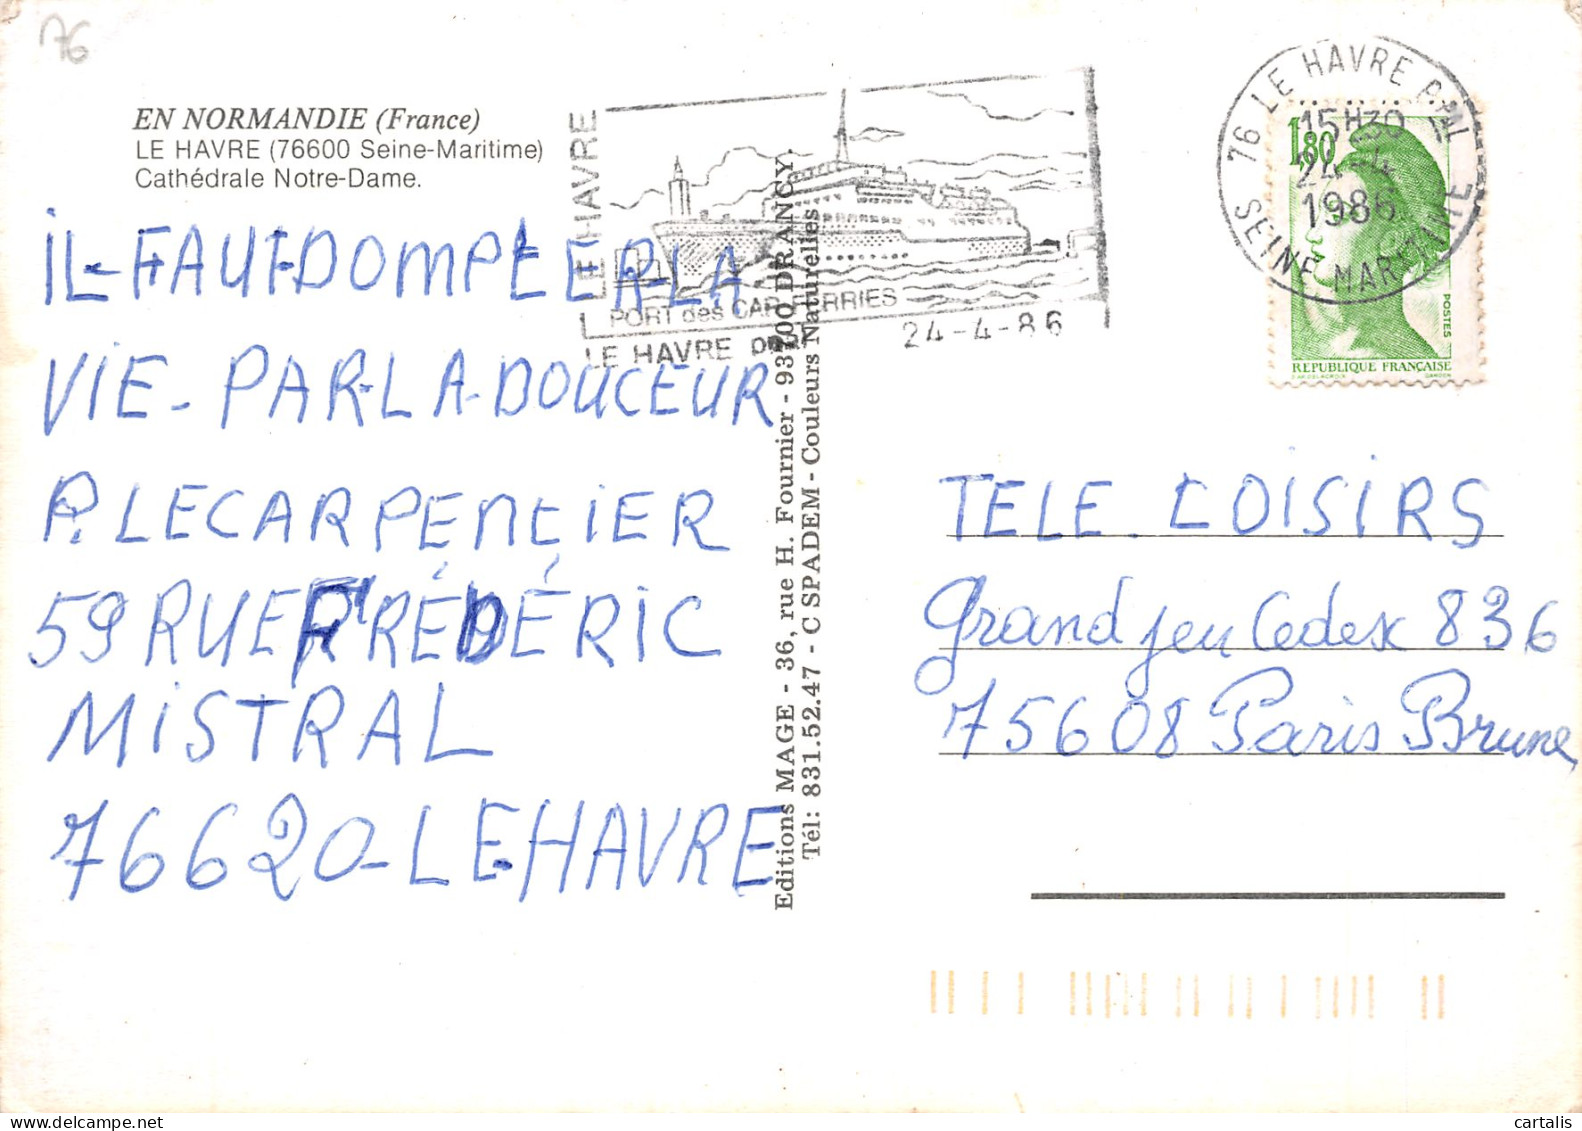 76
EN NORMANDIE (France)
LE HAVRE (76600 Seine-Maritime)
Cathédrale Notre-Dame.
IL-FAUT DOMPLEER-LA
VIE - PAR-LA-DOUCEUR
P. LECARPENTIER
59 RUE FRÉDÉRIC
MISTRAL
76620-LE-HAVRE
Editions MAGE - 36, rue H. Fournier - 93700 DRANCY.
Tél: 831.52.47 - C SPADEM - Couleurs Naturelles
LE HAVRE
LE HAVRE
PORT des CAR FERRIES
LE HAVRE
24-4-86
76 LE HAVRE PAL
15H30
24-4
1986
SEINE MARITIME
1,80
POSTES
REPUBLIQUE FRANÇAISE
TELE LOISIRS
Grand jeu Cedex 836
75608 Paris Brune
cartalis